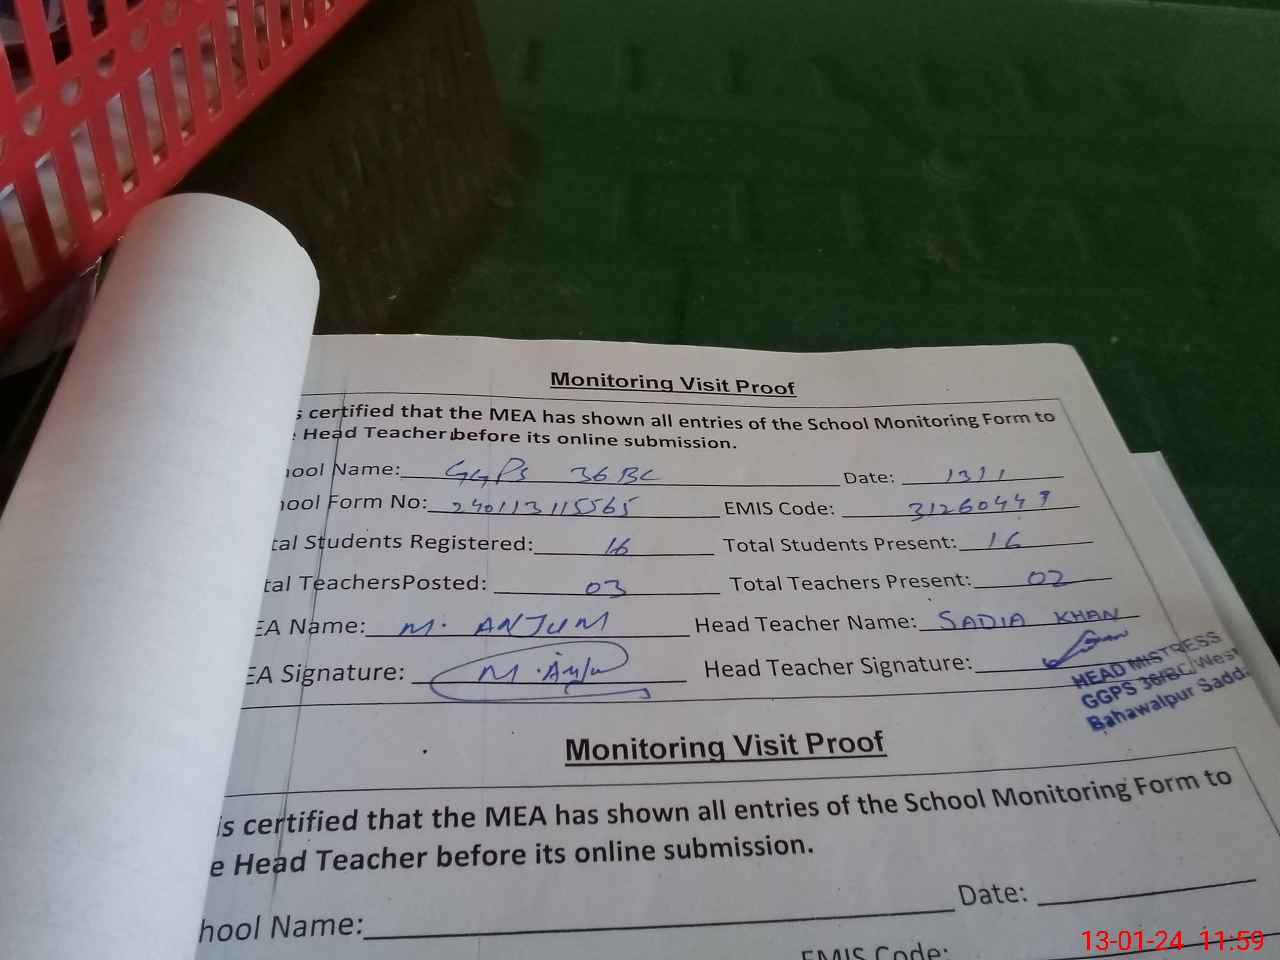 Monitoring Visit Proof
s certified that the MEA has shown all entries of the School Monitoring Form to
Head Teacher before its online submission.
hool Name: GGPS 36 BC Date: 13/1
hool Form No: 240113115565 EMIS Code: 31260449
tal Students Registered: 16 Total Students Present: 16
tal TeachersPosted: 03 Total Teachers Present: 02
EA Name: M. ANJUM Head Teacher Name: SADIA KHAN
EA Signature: M. Anju Head Teacher Signature:
HEAD MISTRESS
GGPS 36/BC/West
Bahawalpur Sadd
Monitoring Visit Proof
is certified that the MEA has shown all entries of the School Monitoring Form to
e Head Teacher before its online submission.
hool Name: Date:
EMIS Code:
13-01-24 11:59